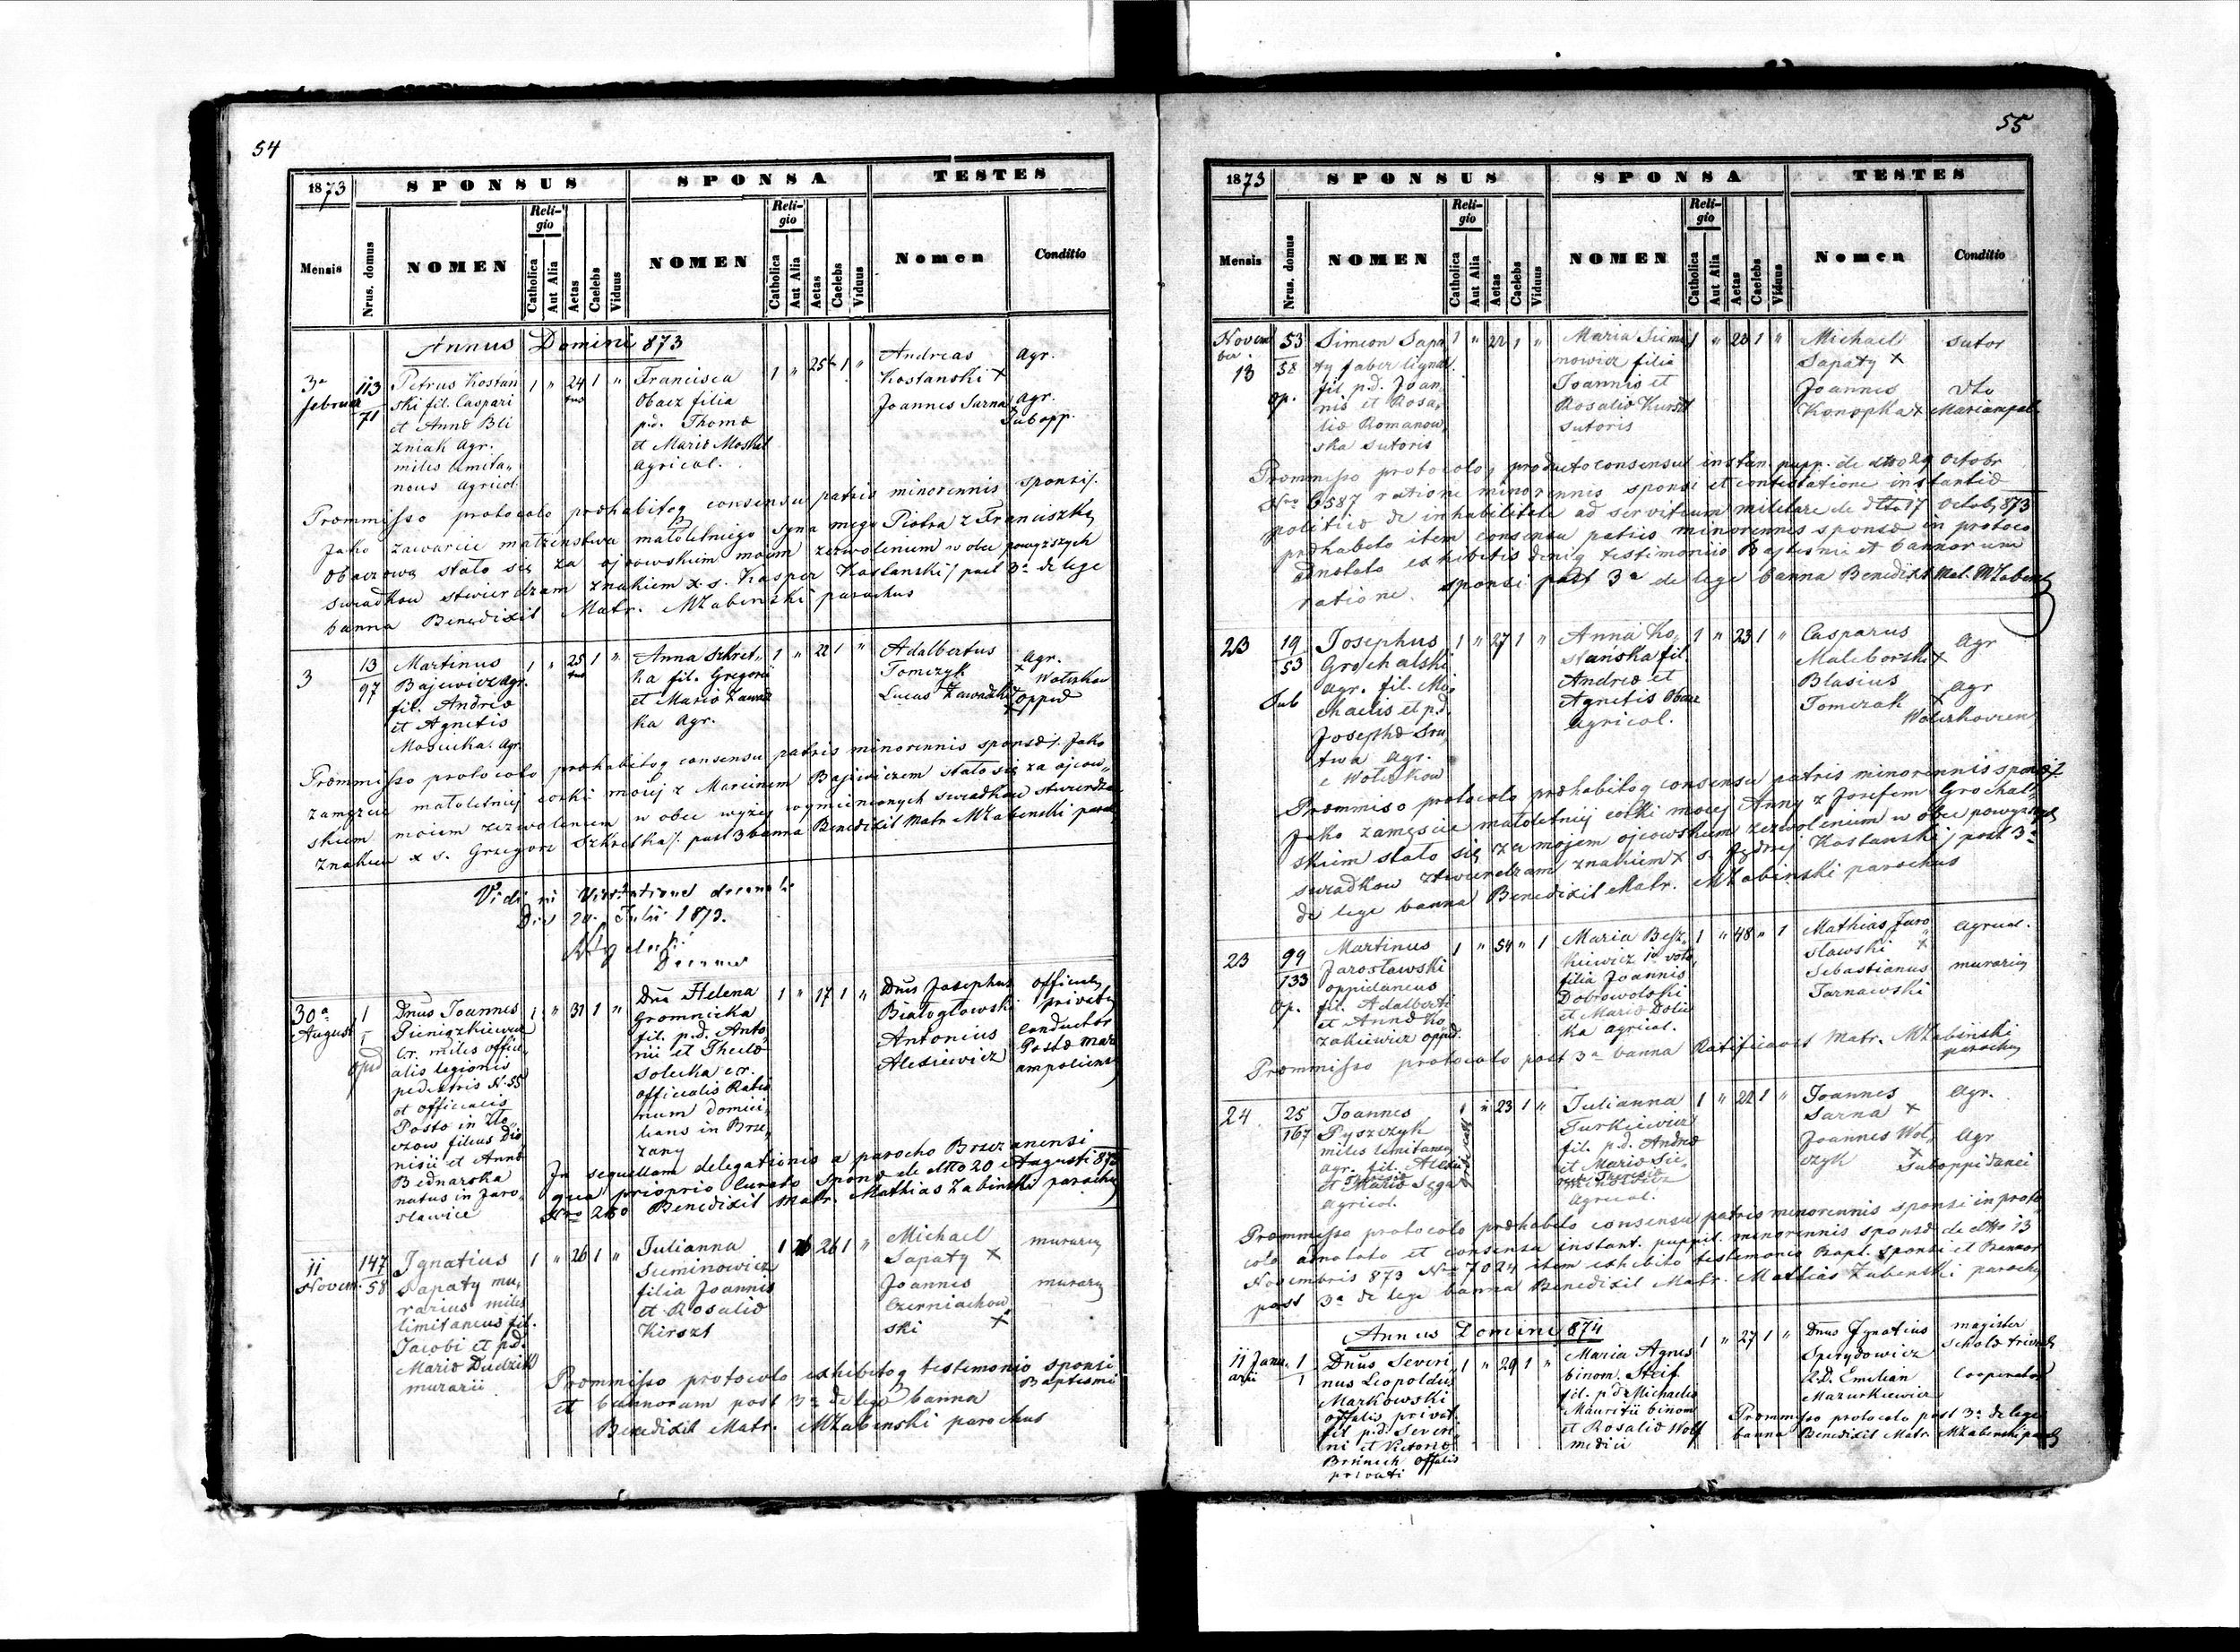 54
1873
SPONSUS
SPONSA
TESTES
Mensis
Nrus. domus
NOMEN
Religio
Catholica
Aut Alia
Aetas
Caelebs
Viduus
NOMEN
Religio
Catholica
Aut Alia
Aetas
Caelebs
Viduus
Nomen
Conditio
Annus Domini 873
3a
113
71
Petrus Kostań
ski fil. Caspari
et Anna Bli
zniak agr.
miles limita„
neus agricol.
1 „ 24 1 „
Francisca
Obacz filia
p.d. Thoma
et Maria Moskal
agricol.
1 „ 25 1 „
Andreas
Kostanski +
Joannes Sarna
Agr.
Agr.
Subopp.
Prœmmisso protocolo præhabitoq consensu patris minorennis sponsi/.
Jako zawarcie małżeństwa małoletniego syna mego Piotra z Franciszką
Obaczową stało się za ojcowskiem moim zezwoleniem w obec powyższych
swiadkow stwierdzam znakiem x. s. Kasper Kostanski/ post 3a de lege
banna Benedixit Matr. MŻabinski parochus
3
13
97
Martinus
Bajewicz agr.
fil. Andrea
et Agnetis
Mosucka. Agr.
1 „ 25 1 „
Anna Szkret„
ka fil. Gregorii
et Maria Zawad
ka Agr.
1 „ 22 1 „
Adalbertus
Tomczyk
Lucas Zawadzki
Agr.
Prœmmisso protocolo præhabitoq consensu patris minorennis sponsæ/. Jako
zamęzcie małoletniej corki mojej z Marcinem Bajewiczem stało się za ojcow„
skiem moiem zezwoleniem w obec wyżej wymienionych swiadkow stwierdza
znakiem x s. Grzegorz Szkretka/. post 3 banna Benedixit Matr MŻabinski paroch
Vidi in Visitatione decanali
Die 20. Julii 1873.
30a
August
1
1
Dnus Joannes
Pieniązkiewicz
cr. miles offici„
alis legionis
pedestris N. 55
et officialis
Posta in Zło„
czow filius Dio
nisii et Anna
Bednarska
natus in Jaro„
sławice
1 „ 31 1 „
Dna Helena
Gromnicka
fil. p.d. Anto„
nii et Thecla
Solecka cr.
officialis Ratio
num domici„
lians in Brze„
zany
1 „ 17 1 „
Dnus Josephus
Białogłowski
Antonius
Alesiewicz
officialis
privatus
Conductor
Posta Mari
ampoliensis
In sequellam delegationis a parocho Brzezanensi
qua proprio Curato sponsæ de dtto 20 Augusti 873
Nro 280 Benedixit Matr. Mathias Żabinski parochus
11
Novem.
147
58
Ignatius
Sapaty mu„
rarius miles
limitaneus fil.
Jacobi et p.d.
Maria Dudzik
murarii
1 „ 26 1 „
Julianna
Sieminowicz
filia Joannis
et Rosalia
Kirszt
1 26 1 „
Michael
Sapaty +
Joannes
Czerniachow
ski +
murarius
murarius
Prœmmisso protocolo exhibitoq testimonio sponsi
Baptismi
et bannorum post 3a de lege banna
Benedixit Matr. MŻabinski parochus
55
1873
SPONSUS
SPONSA
TESTES
Mensis
Nrus. domus
NOMEN
Religio
Catholica
Aut Alia
Aetas
Caelebs
Viduus
NOMEN
Religio
Catholica
Aut Alia
Aetas
Caelebs
Viduus
Nomen
Conditio
Novem
ber.
13
53
58
Op.
Simeon Sapa
ty faber lignar.
fil p.d. Joan„
nis et Rosa„
lia Romanow„
ska sutoris
1 „ 22 1 „
Maria Siemi
nowicz filia
Joannis et
Rosalia Kurszt
sutoris
1 „ 20 1 „
Michael
Sapaty +
Joannes
Konopka +
Sutor
dto
Mariampol.
Prœmmisso protocolo, producto consensu instan. pupp. de dtto 29 Octobr
Nro 6587 ratione minorennis sponsi et contestatione instantia
politica de inhabilitate ad servitium militare de dtto 17 Octob. 873
præhabito item consensu patris minorennis sponsæ in protoco
adnotato exhibitis deniq testimoniis Baptismi et bannorum
ratione sponsi post 3a de lege banna Benedixit Mat. MŻabinski
23
19
53
Sub
Josephus
Grochalski
agr. fil. Mi„
chaelis et p.d.
Josepha Sru„
twa Agr.
e Wołczkow
1 „ 27 1 „
Anna Ko„
stańska fil.
Andrea et
Agnetis Obacz
Agricol.
1 „ 23 1 „
Casparus
Maleborski +
Blasius
Tomczak +
Agr
Agr
Prœmmiso protocolo præhabitoq consensu patris minorennis sponsæ/.
Jako zamęście małoletniej corki mojej Anny z Josefem Grochal„
skiem stało się za mojem ojcowskiem zezwoleniem w obec powyższych
swiadkow stwierdzam znakiem x s. Jędrzej Kostanski/ post 3a
de lege banna Benedixit Matr. MŻabinski parochus
23
99
133
Op.
Martinus
Jarosławski
oppidaneus
fil. Adalberti
et Anna Ko„
zakiewicz oppid.
1 „ 54 „ 1
Maria Besz„
kiewicz 1o voto
filia Joannis
Dobrowolski
et Maria Dolin
ka agricol.
1 „ 48 „ 1
Mathias Jaro„
sławski +
Sebastianus
Tarnawski
agricol.
murarius
Prœmmisso protocolo post 3a banna Ratificavit Matr. MŻabinski
parochus
24
25
167
Joannes
Pyszczyk
miles limitaneus
agr. fil. Alexii
et Maria Sęga
agricol.
1 „ 23 1 „
Julianna
Turkiewicz
fil. p.d. Andrea
et Maria
Agricol.
1 „ 22 1 „
Joannes
Sarna +
Joannes Woł„
czyk +
Agr.
Agr
Suboppidanei
Prœmmisso protocolo præhabito consensu patris minorennis sponsi in proto
colo adnotato et consensu instant. puppil. minorennis sponsæ de dtto 13
Novembris 873 Nro 7024 item exhibito testimonio Bapt. sponsi et Bannor
post 3a de lege banna Benedixit Matr. Mathias Żabinski parochus
Annus Domini 874
11 Janu„
arii
1
1
Dnus Severi
nus Leopoldus
Markowski
offalis privat.
fil p.d. Severi
ni et Victoria
Brünich offalis
privati
1 „ 29 1 „
Maria Agnes
binom. Steif
fil. p.d. Michaelis
Mauritii binom
et Rosalia Wolf
medici
1 „ 27 1 „
Dnus Ignatius
Spirydowicz
A.D. Emilian
Mazurkiewicz
magister
Schola trivial
Cooperator
Prœmmisso protocolo post 3a de lege
banna Benedixit Matr. MŻabinski paroch